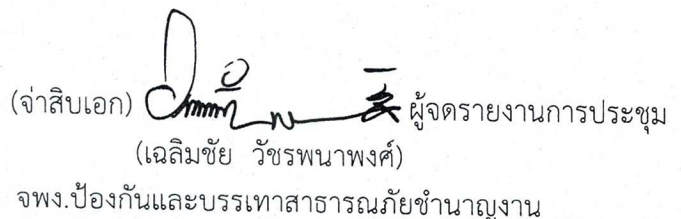 (จ่าสิบเอก) ผู้จดรายงานการประชุม
(เฉลิมชัย วัชรพนาพงศ์)
จพง.ป้องกันและบรรเทาสาธารณภัยชำนาญงาน